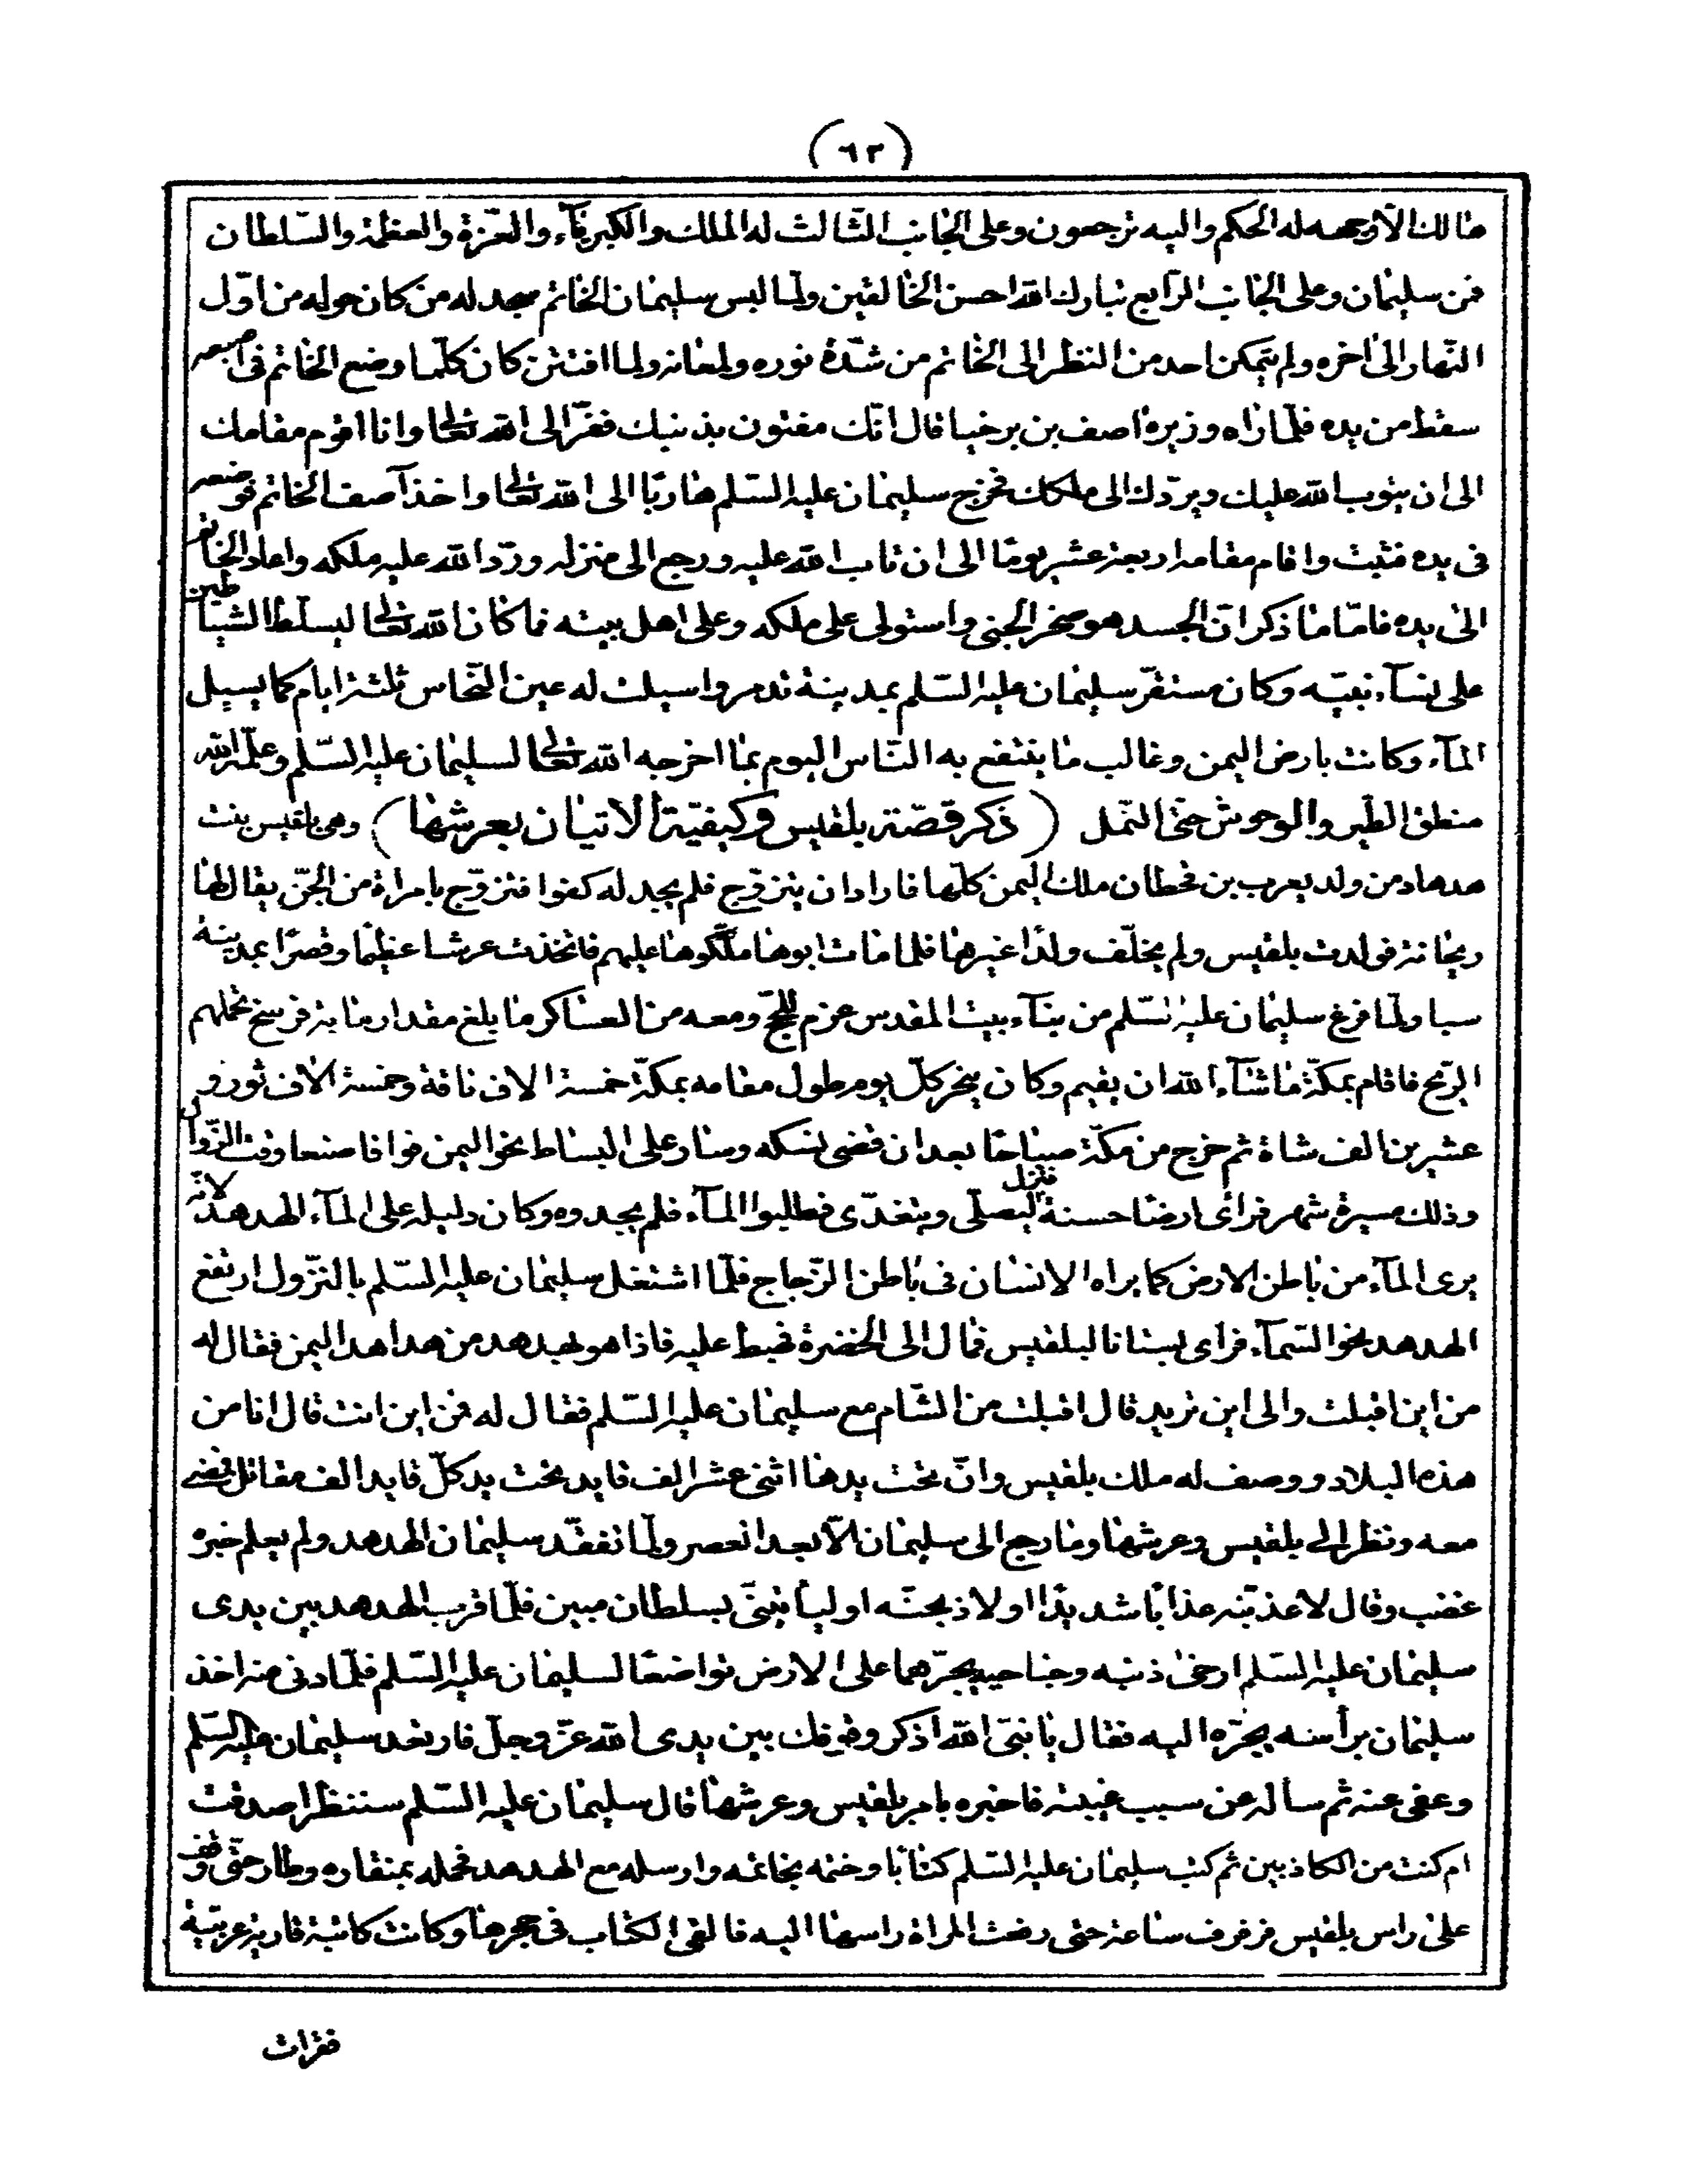 (٦٣)
هالك الّا وجهه له الحكم واليه ترجعون وعلى الجانب الثّالث له الملك والكبريآء والعزّة والعظمة والسّلطان
فمن سليمان وعلى الجانب الرّابع تبارك الله احسن الخالقين ولمّا لبس سليمان الخاتم سجد له من كان حوله من اوّل
النّهار الى اخره ولم يتمكن احد من النظر الى الخاتم من شدّة نوره ولمعانه ولما افتتن كان كلّما وضع الخاتم فى اصبعه
سقط من يده فلمّا راه وزيره اصف بن برخيا قال انّك مفتون بذنبك ففرّ الى الله تعالى وانا اقوم مقامك
الى ان يتوب الله عليك ويردّك الى ملكك فخرج سليمان عليه السّلم هاربًا الى الله تعالى واخذ آصف الخاتم فوضعه
فى يده فثبت واقام مقامه اربعة عشر يومًا الى ان تاب الله عليه ورجع الى منزله وردّ الله عليه ملكه واعاد الخاتم
الى يده فامّا ما ذكر انّ الجسد هو صخر الجنى واستولى على ملكه وعلى اهل بيته فما كان الله تعالى ليسلّط الشياطين
على نسآء نبيّه وكان مستقرّ سليمان عليه السّلم بمدينة تدمر واسيلت له عين النّحاس ثلثة ايام كما يسيل
المآء وكانت بارض اليمن وغالب ما ينتفع به النّاس اليوم بما اخرجه الله تعالى لسليمان عليه السّلم وعلّمه الله
منطق الطّير والوحوش حتى النّمل (ذكر قصّة بلقيس وكيفيّة الاتيان بعرشها) وهى بلقيس بنت
هدهاد من ولد يعرب بن قحطان ملك اليمن كلّها فاراد ان يتزوّج فلم يجد له كفوا فتزوّج بامراة من الجنّ يقال لها
ريحانة فولدت بلقيس ولم يخلّف ولدًا غيرها فلما مات ابوها ملّكوها عليهم فاتخذت عرشا عظيما وقصرًا بمدينة
سبا ولمّا فرغ سليمان عليه السّلم من بنآء بيت المقدس عزم للحجّ ومعه من العساكر ما بلغ مقدار ماية فرسخ تحملهم
الرّيح فاقام بمكّة ما شآء الله ان يقيم وكان ينحر كلّ يوم طول مقامه بمكّة خمسة الاف ناقة وخمسة الاف ثور و
عشرين الف شاة ثم خرج من مكّة صباحًا بعد ان قضى نسكه وسار على البساط نحو اليمن فوافا صنعا وقت الزّوال
وذلك مسيرة شهر فراى ارضًا حسنة فنزل ليصلّى ويتغدّى فطلبوا المآء فلم يجدوه وكان دليله على المآء الهدهد لانّه
يرى المآء من باطن الارض كما يراه الانسان فى باطن الزّجاج فلمّا اشتغل سليمان عليه السّلم بالنزّول ارتفع
الهدهد نحو السّمآء فراى بستانا لبلقيس فمال الى الخضرة فهبط عليه فاذا هو بهدهد من هداهد اليمن فقال له
من اين اقبلت والى اين تريد قال اقبلت من الشّام مع سليمان عليه السّلم فقال له فمن اين انت قال انا من
هذه البلاد ووصف له ملك بلقيس وانّ تحت يدها اثنى عشر الف قايد تحت يد كلّ قايد الف مقاتل فمضى
معه ونظر الى بلقيس وعرشها وما رجع الى سليمان الّا بعد العصر ولمّا تفقّد سليمان الهدهد ولم يعلم خبره
غضب وقال لاعذّبنّه عذابًا شديدًا او لاذبحنّه او ليأتينّى بسلطان مبين فلمّا قرب الهدهد بين يدى
سليمان عليه السّلم ارخى ذنبه وجناحيه يجرّهما على الارض تواضعًا لسليمان عليه السّلم فلمّا دنى منه اخذ
سليمان برأسه يجرّه اليه فقال يا نبىّ الله اذكر وقوفك بين يدى الله عزّ وجلّ فارتعد سليمان عليه السّلم
وعفى عنه ثم سأله عن سبب غيبته فاخبره بامر بلقيس وعرشها قال سليمان عليه السّلم سننظر اصدقت
ام كنت من الكاذبين ثم كتب سليمان عليه السّلم كتابًا وختمه بخاتمه وارسله مع الهدهد فحمله بمنقاره وطار حتّى وقف
على راس بلقيس فرفرف ساعة حتى رفعت المراة راسها اليه فالقى الكتاب فى حجرها وكانت كاتبة قارية عربيّة
فقرات